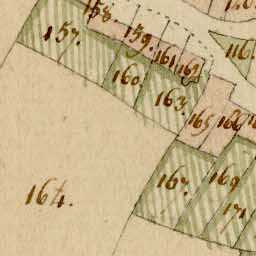 158.
157.
159.
116.
161.
162
160.
163.
165
166
167.
164.
169
171